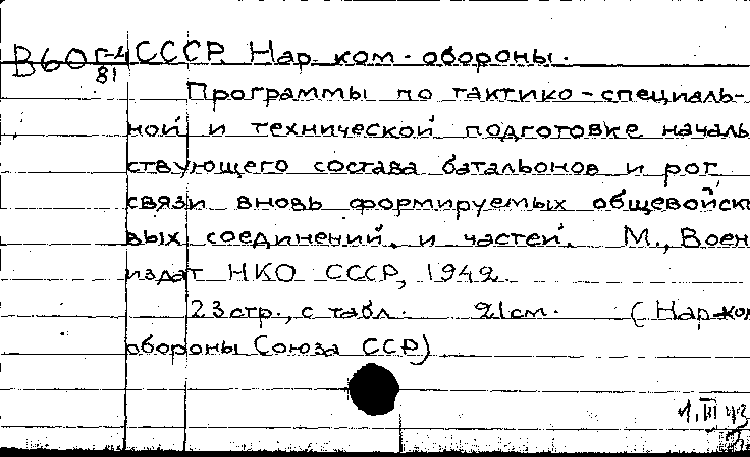 В60 Г-4/81 СССР. Нар. ком. обороны.
Программы по тактико-специаль-
ной и технической подготовке началь
ствующего состава батальонов и рот
связи вновь формируемых общевойско
вых соединений и частей. М., Воен
издат НКО СССР, 1942
23 стр., с табл. 21 см. (Нар. ком
обороны Союза ССР)
1.III 43